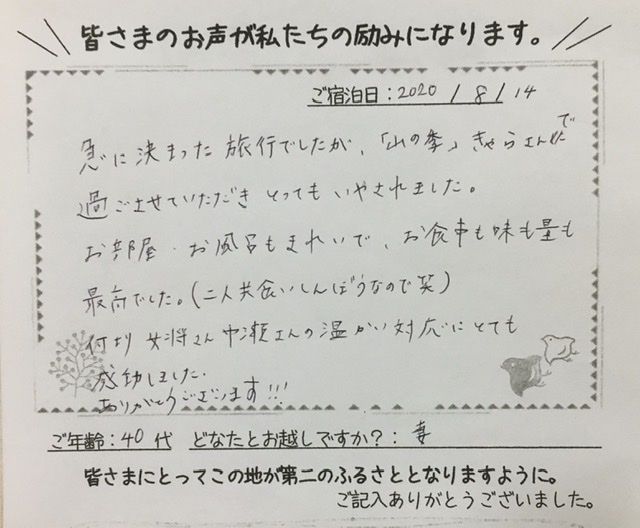 皆さまのお声が私たちの励みになります。
ご宿泊日：2020 / 8 / 14
急に決まった旅行でしたが、「山の季」きゃらさんで
過ごさせていただきとってもいやされました。
お部屋・お風呂もきれいで、お食事も味も量も
最高でした。(二人共食いしんぼうなので笑)
何より女将さん中瀬さんの温かい対応にとても
感動しました。
ありがとうございます!!!
ご年齢：40 代 どなたとお越しですか？：妻
皆さまにとってこの地が第二のふるさととなりますように。
ご記入ありがとうございました。